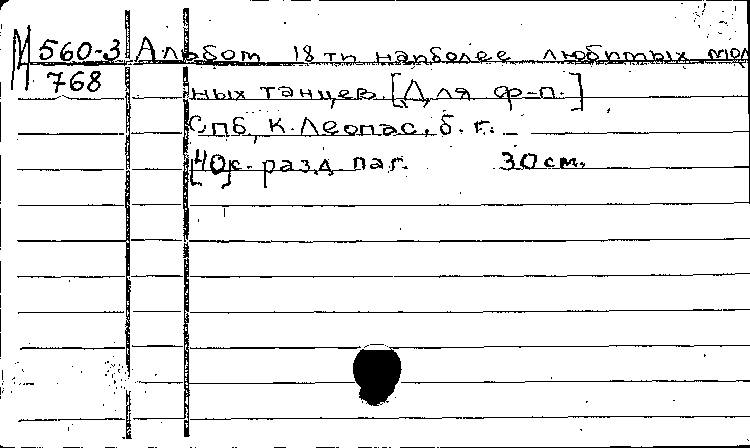 М 560-3 Альбом 18 ти наиболее любимых мод
768 ных танцев. [Для ф-п.]
СПб, К. Леопас, б. г.
[40]с. разд. паг. 30 см.